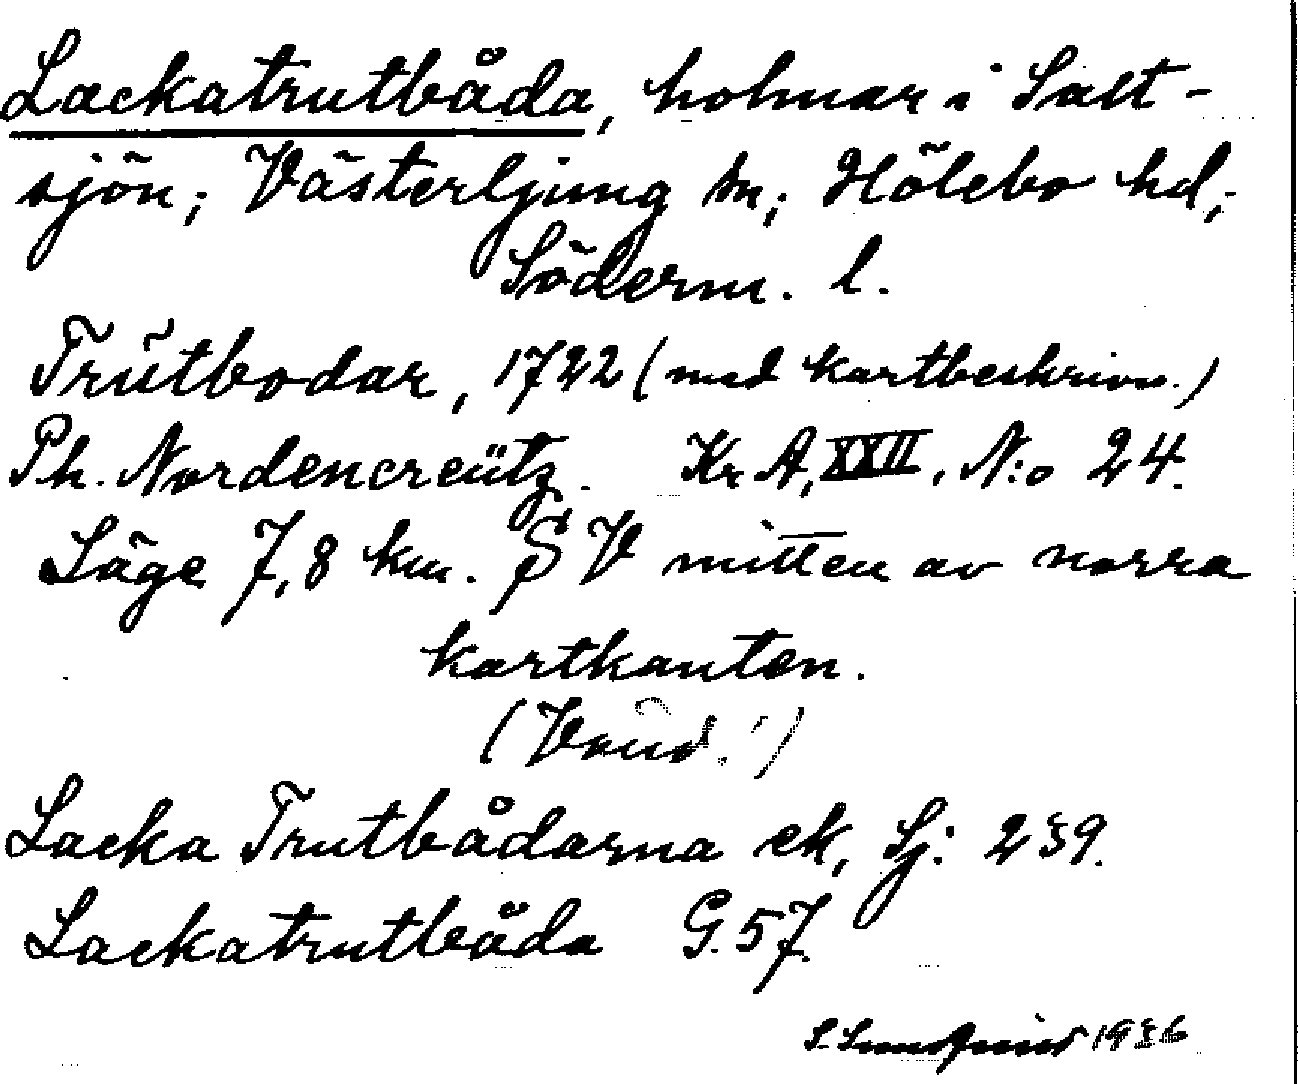 Lackatrutbåda, holmar i Salt-
sjön; Västerljung sn; Hölebo hd,
Söderm. l.
Trutbodar, 1722 (med kartbeskrivn.)
Ph. Nordencreütz. Kr A, XXII, N:o 24.
Läge 7,8 km. SV mitten av norra
kartkanten.
Lacka Trutbådarna ek, Sj: 239.
Lackatrutbåda G. 57.
1936